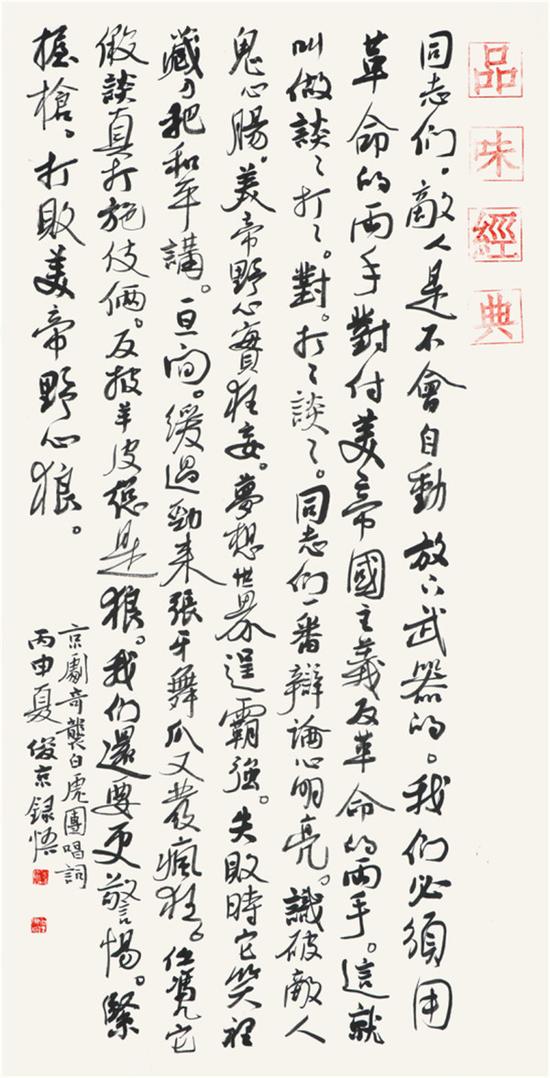 品味經典
同志們。敵人是不會自動放下武器的。我們必須用
革命的両手對付美帝國主義反革命的両手。這就
叫做談〻打〻。對。打〻談〻。同志們一番辯論心明亮。識破敵人
鬼心腸。美帝野心實狂妄。夢想世界逞霸強。失敗時它笑裡
藏刀把和平講。一旦间。緩過勁来張牙舞爪又發瘋狂。任憑它
假談真打施伎倆。反披羊皮總是狼。我們還要更警惕。緊
握槍、打敗美帝野心狼。
京劇奇襲白虎團唱詞
丙申夏 俊京録悟